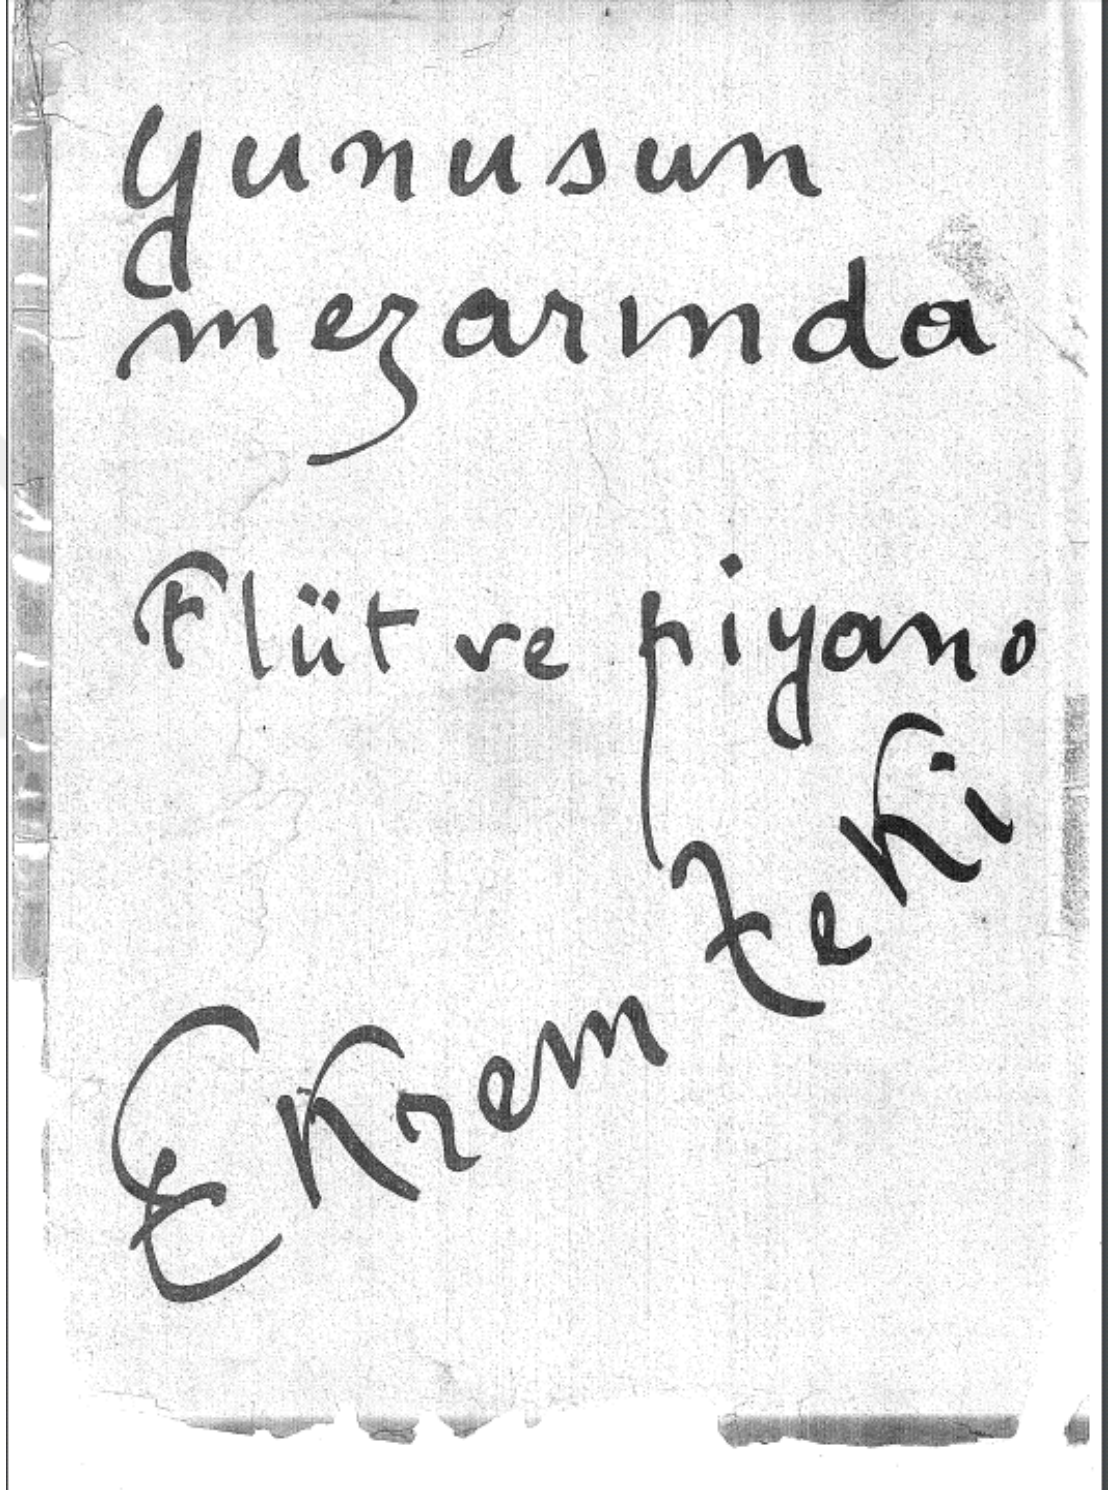 Yunusun
mezarında
Flüt ve piyano
Ekrem Zeki